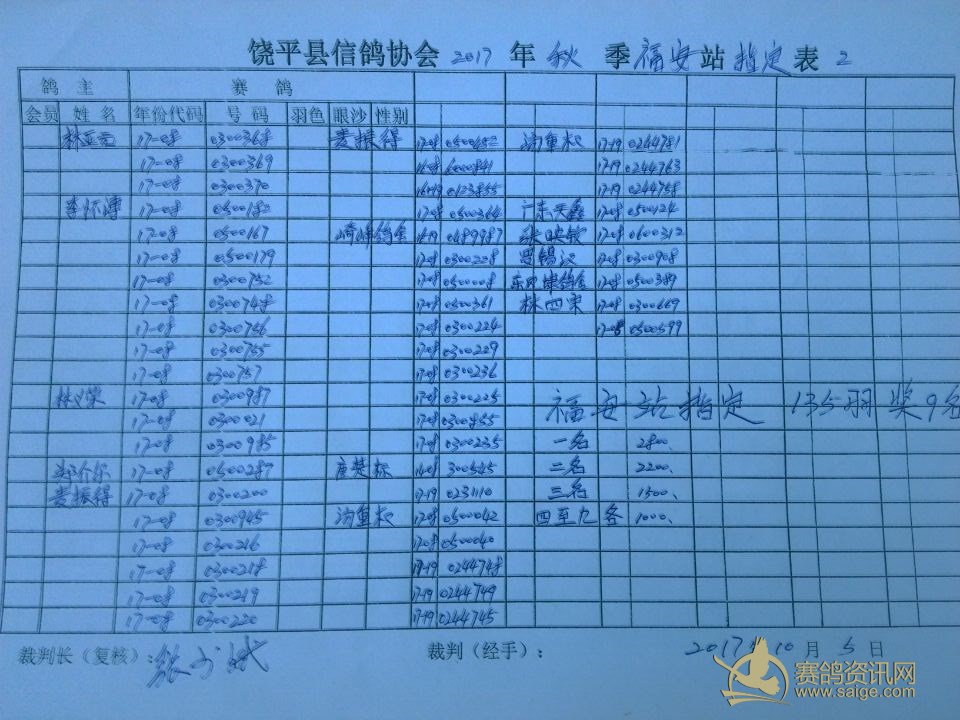 饶平县信鸽协会 2017 年 秋 季 福安 站 指定 表 2
鸽 主 赛 鸽
会员 姓 名 年份代码 号 码 羽色 眼沙 性别
17-08 0300368 麦振得 17-08 0500452 17-19 0244781
17-08 0300369 16-08 17-19 0244763
17-08 0300370 16-19 0123855 17-19 0244758
李怀涛 17-08 0500182 17-08 0500364 广东天鑫 17-08 0500124
17-08 0500167 崎峰鸽舍 16-19 0489987 张映钦 17-08 0600312
17-08 0500179 17-08 0300228 贾锡汉 17-08 0300908
17-08 0300752 17-08 0500008 17-08 0500389
17-08 0300748 17-08 0500361 林四宋 17-08 0300669
17-08 0300756 17-08 0300224 17-08 0500599
17-08 0300755 17-08 0300229
17-08 0300757 17-08 0300236
17-08 0300987 17-08 0300225 福安站指定 135羽 奖9名
17-08 0300021 17-08 0300855
17-08 0300985 17-08 0300235 一名 2800、
17-08 0500287 300545 二名 2200、
麦振得 17-08 0300200 17-19 0231110 三名 1500、
17-08 0300945 17-08 0500042 四至九各 1000、
17-08 0300216 17-08 0500040
17-08 0300218 17-19 0244748
17-08 0300219 17-19 0244749
17-08 0300220 17-19 0244745
裁判长（复核）： 裁判（经手）： 2017 年 10 月 5 日
赛鸽资讯网
www.saige.com